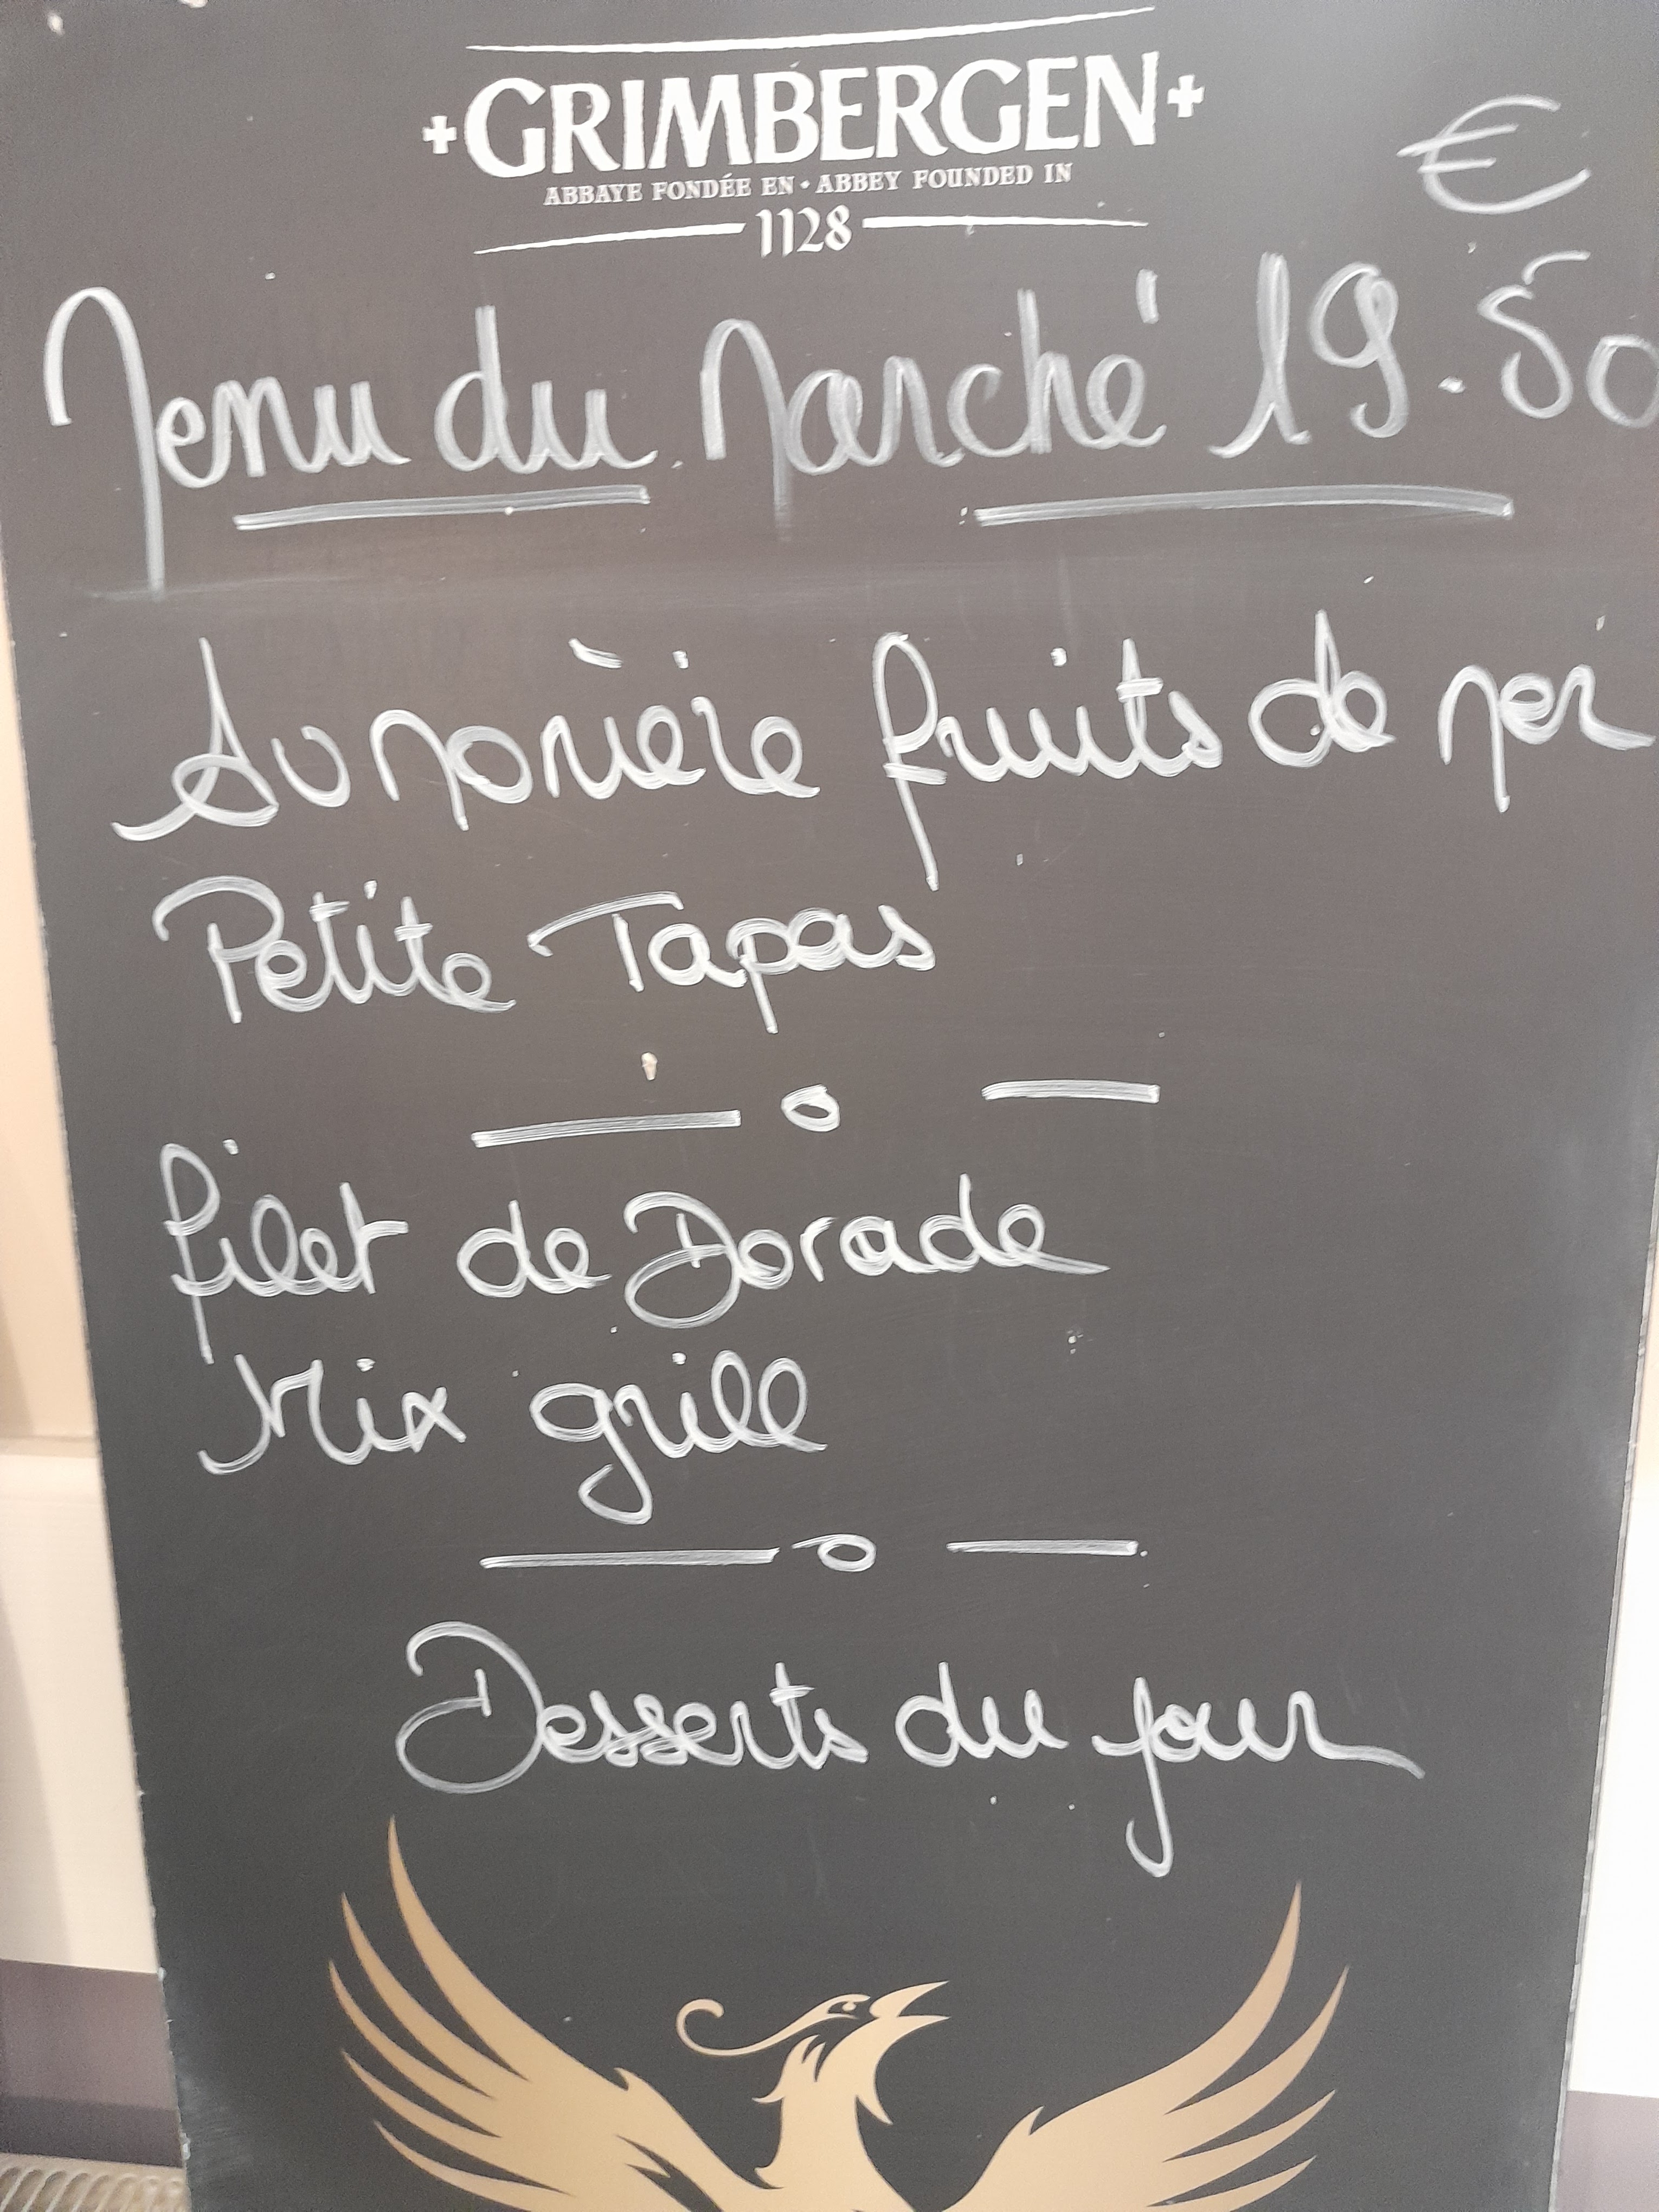 GRIMBERGEN
ABBAYE FONDÉE EN • ABBEY FOUNDED IN
1128
€
Menu du Marché 19.50
Aumonière fruits de mer
Petite Tapas
filet de Dorade
Mix grill
Desserts du jour